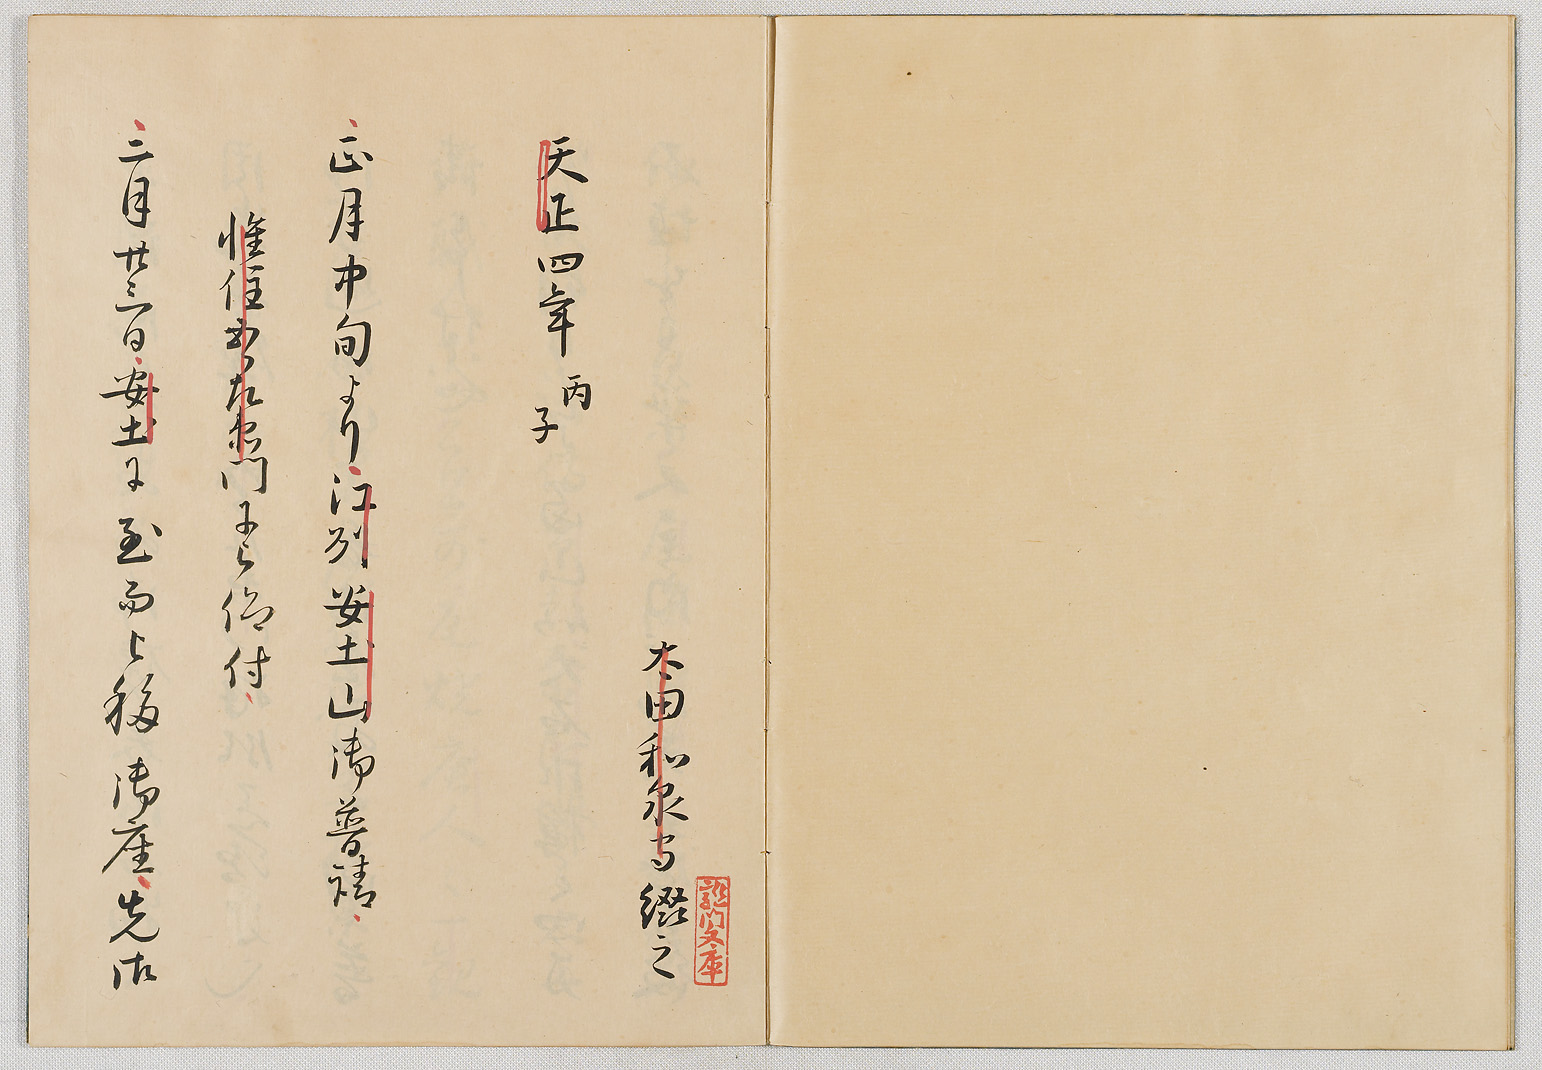 太田和泉守綴之
龍門文庫
天正四年丙子
正月中旬より江州安土山御普請
惟住五郎左衛門に被仰付
二月廿三日安土に至而被移御座先御